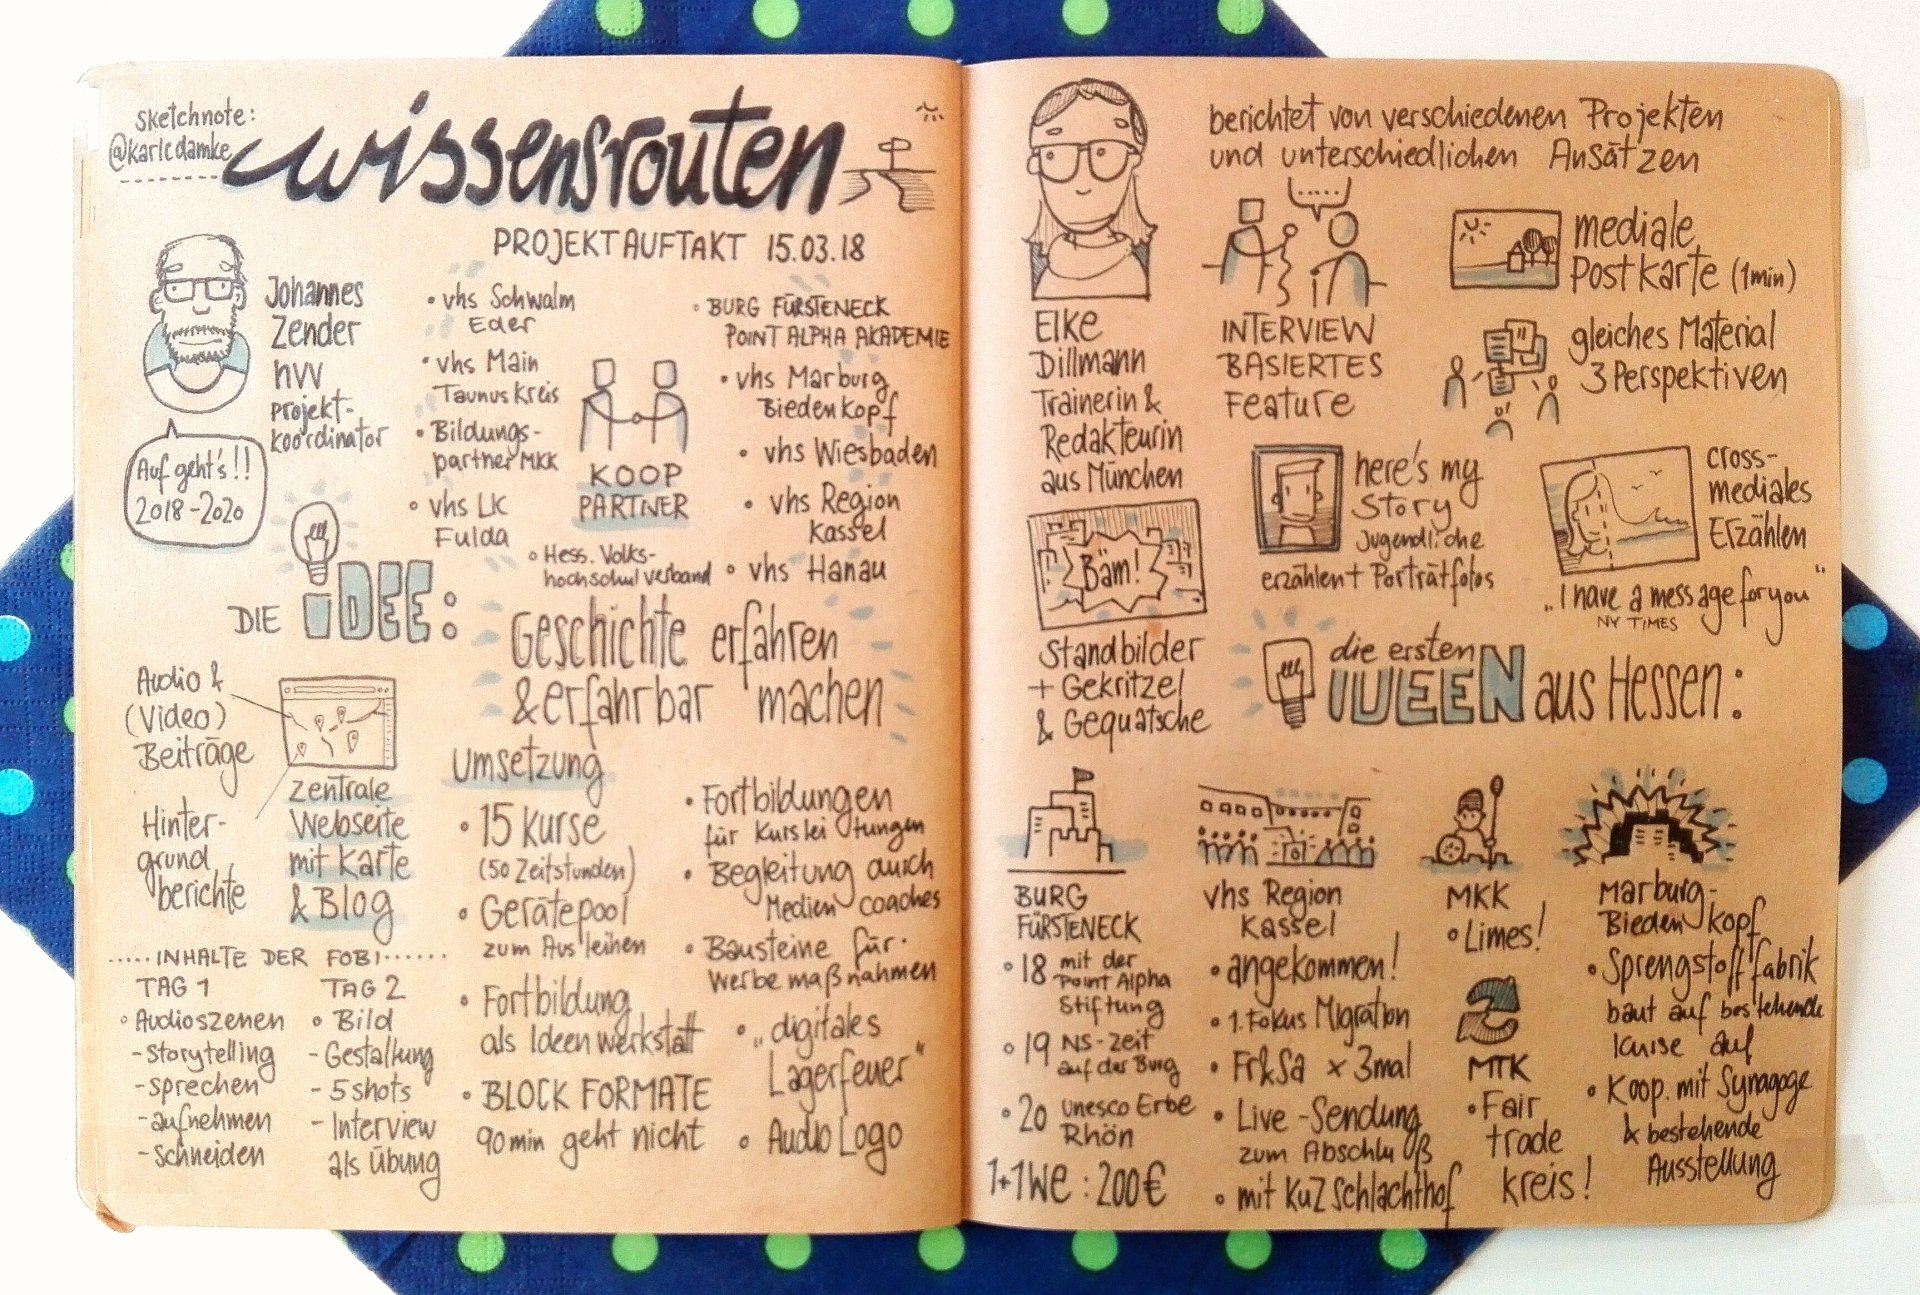 sketchnote:
@karlcdamke
wissensrouten
PROJEKTAUFTAKT 15.03.18
Johannes
Zender
hvv
Projekt-
koordinator
Auf geht's!!
2018-2020
• vhs Schwalm
Eder
• vhs Main
Taunus Kreis
• Bildungs-
partner MKK
• vhs LK
Fulda
• Hess. Volks-
hochschulverband
KOOP
PARTNER
• BURG FÜRSTENECK
POINT ALPHA AKADEMIE
• vhs Marburg
Biedenkopf
• vhs Wiesbaden
• vhs Region
Kassel
• vhs Hanau
DIE IDEE:
Geschichte erfahren
& erfahrbar machen
Audio &
(Video)
Beiträge
Hinter-
grund
berichte
zentrale
Webseite
mit Karte
& Blog
.....INHALTE DER FOBI......
TAG 1
• Audioszenen
- Storytelling
- sprechen
- aufnehmen
- schneiden
TAG 2
• Bild
- Gestaltung
- 5 shots
- Interview
als Übung
Umsetzung
• 15 Kurse
(50 Zeitstunden)
• Gerätepool
zum Ausleihen
• Fortbildung
als Ideenwerkstatt
• BLOCK FORMATE
90 min geht nicht
• Fortbildungen
für Kursleitungen
• Begleitung durch
Medien coaches
• Bausteine für
Werbemaßnahmen
• „digitales
Lagerfeuer“
• Audio Logo
Elke
Dillmann
Trainerin &
Redakteurin
aus München
berichtet von verschiedenen Projekten
und unterschiedlichen Ansätzen
.....
INTERVIEW
BASIERTES
Feature
mediale
Postkarte (1min)
gleiches Material
3 Perspektiven
Bäm!
Standbilder
+ Gekritzel
& Gequatsche
here's my
Story
Jugendliche
erzählen + Porträtfotos
cross-
mediales
Erzählen
„I have a message for you“
NY TIMES
die ersten
IDEEN aus Hessen:
BURG
FÜRSTENECK
• 18 mit der
Point Alpha
Stiftung
• 19 NS-Zeit
auf der Burg
• 20 Unesco Erbe
Rhön
1+1 WE : 200€
vhs Region
Kassel
• angekommen!
• 1. Fokus Migration
• Fr & Sa x 3mal
• Live-Sendung
zum Abschluß
• mit KUZ Schlachthof
MKK
• Limes!
MTK
• Fair
trade
kreis!
Marburg-
Biedenkopf
• Sprengstofffabrik
baut auf bestehende
Kurse auf
• Koop. mit Synagoge
& bestehende
Ausstellung